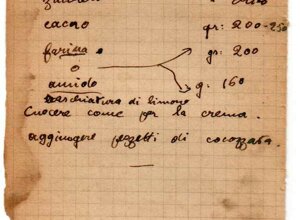 cacao gr: 200-250
farina o gr: 200
o
amido g: 160
raschiatura di limone
Cuocere come per la crema.
aggiungere pezzetti di cocozzata.